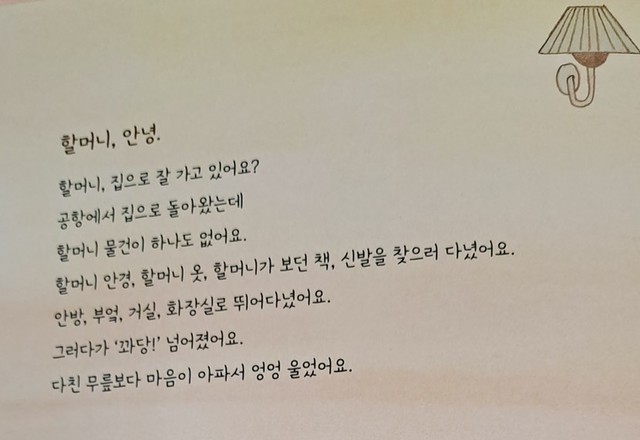 할머니, 안녕.
할머니, 집으로 잘 가고 있어요?
공항에서 집으로 돌아왔는데
할머니 물건이 하나도 없어요.
할머니 안경, 할머니 옷, 할머니가 보던 책, 신발을 찾으러 다녔어요.
안방, 부엌, 거실, 화장실로 뛰어다녔어요.
그러다가 ‘꽈당!’ 넘어졌어요.
다친 무릎보다 마음이 아파서 엉엉 울었어요.